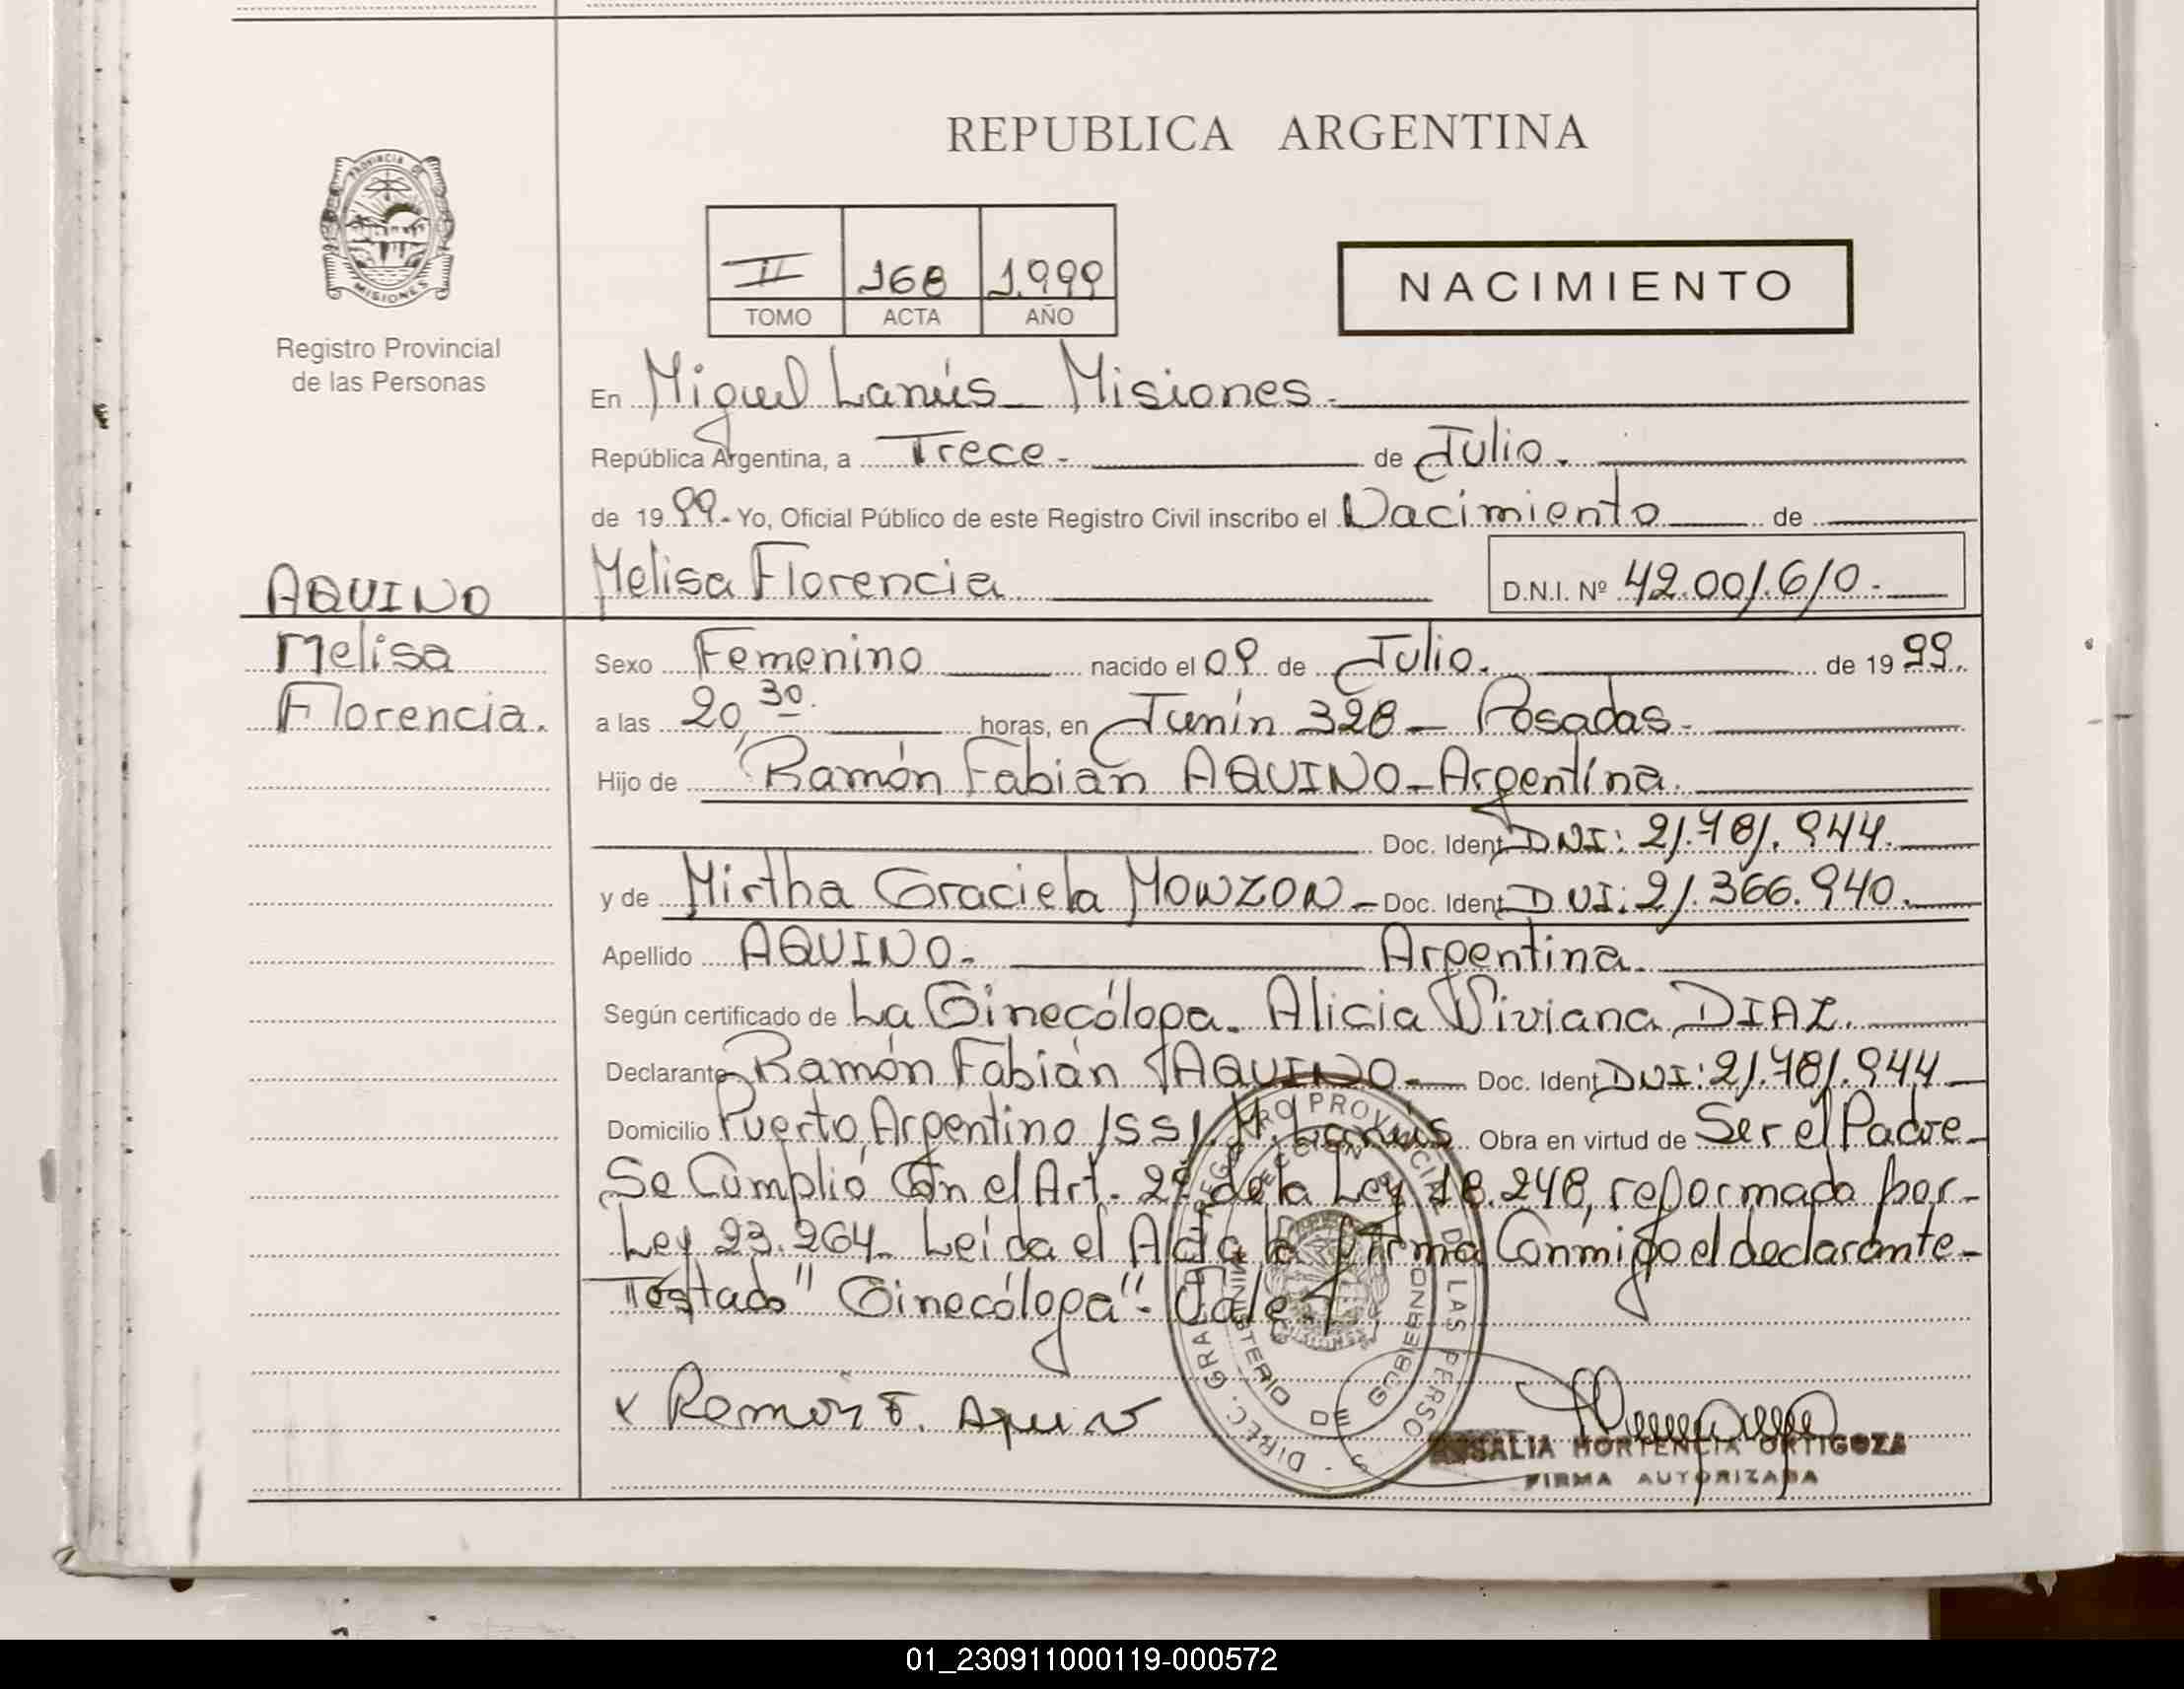 REPUBLICA ARGENTINA
PROVINCIA DE
MISIONES
Registro Provincial
de las Personas
II 168 1.999
TOMO ACTA AÑO
NACIMIENTO
En Miguel Lanús - Misiones.-
República Argentina, a Trece - de Julio.
de 1999.- Yo, Oficial Público de este Registro Civil inscribo el Nacimiento de
AQUINO
Melisa
Florencia.
Melisa Florencia D.N.I. Nº 42.001.610.-
Sexo Femenino nacido el 09 de Julio. de 1999.
a las 20,30. horas, en Junín 328 - Posadas.-
Hijo de Ramón Fabian AQUINO - Argentína.
Doc. Ident. DNI: 21.781.944.
y de Mirtha Graciela MONZON - Doc. Ident. DNI: 21.366.940.
Apellido AQUINO.- Argentina.
Según certificado de La Ginecóloga. Alicia Viviana DIAZ.
Declarante Ramón Fabián AQUINO.- Doc. Ident. DNI: 21.781.944
Domicilio Puerto Argentino 1551. M. Lanús Obra en virtud de Ser el Padre-
Se Cumplió Con el Art. 2º de la Ley 18.248, reformado por-
Ley 23.264. Leída el Acta la firma Conmigo el declarante-
Testado "Ginecóloga"- Vale-
x Ramón F. Aquino
DIREC. GRAL. REGISTRO PROVINCIAL DE LAS PERSONAS
MINISTERIO DE GOBIERNO
ROSALIA HORTENCIA ORTIGOZA
FIRMA AUTORIZADA
01_230911000119-000572